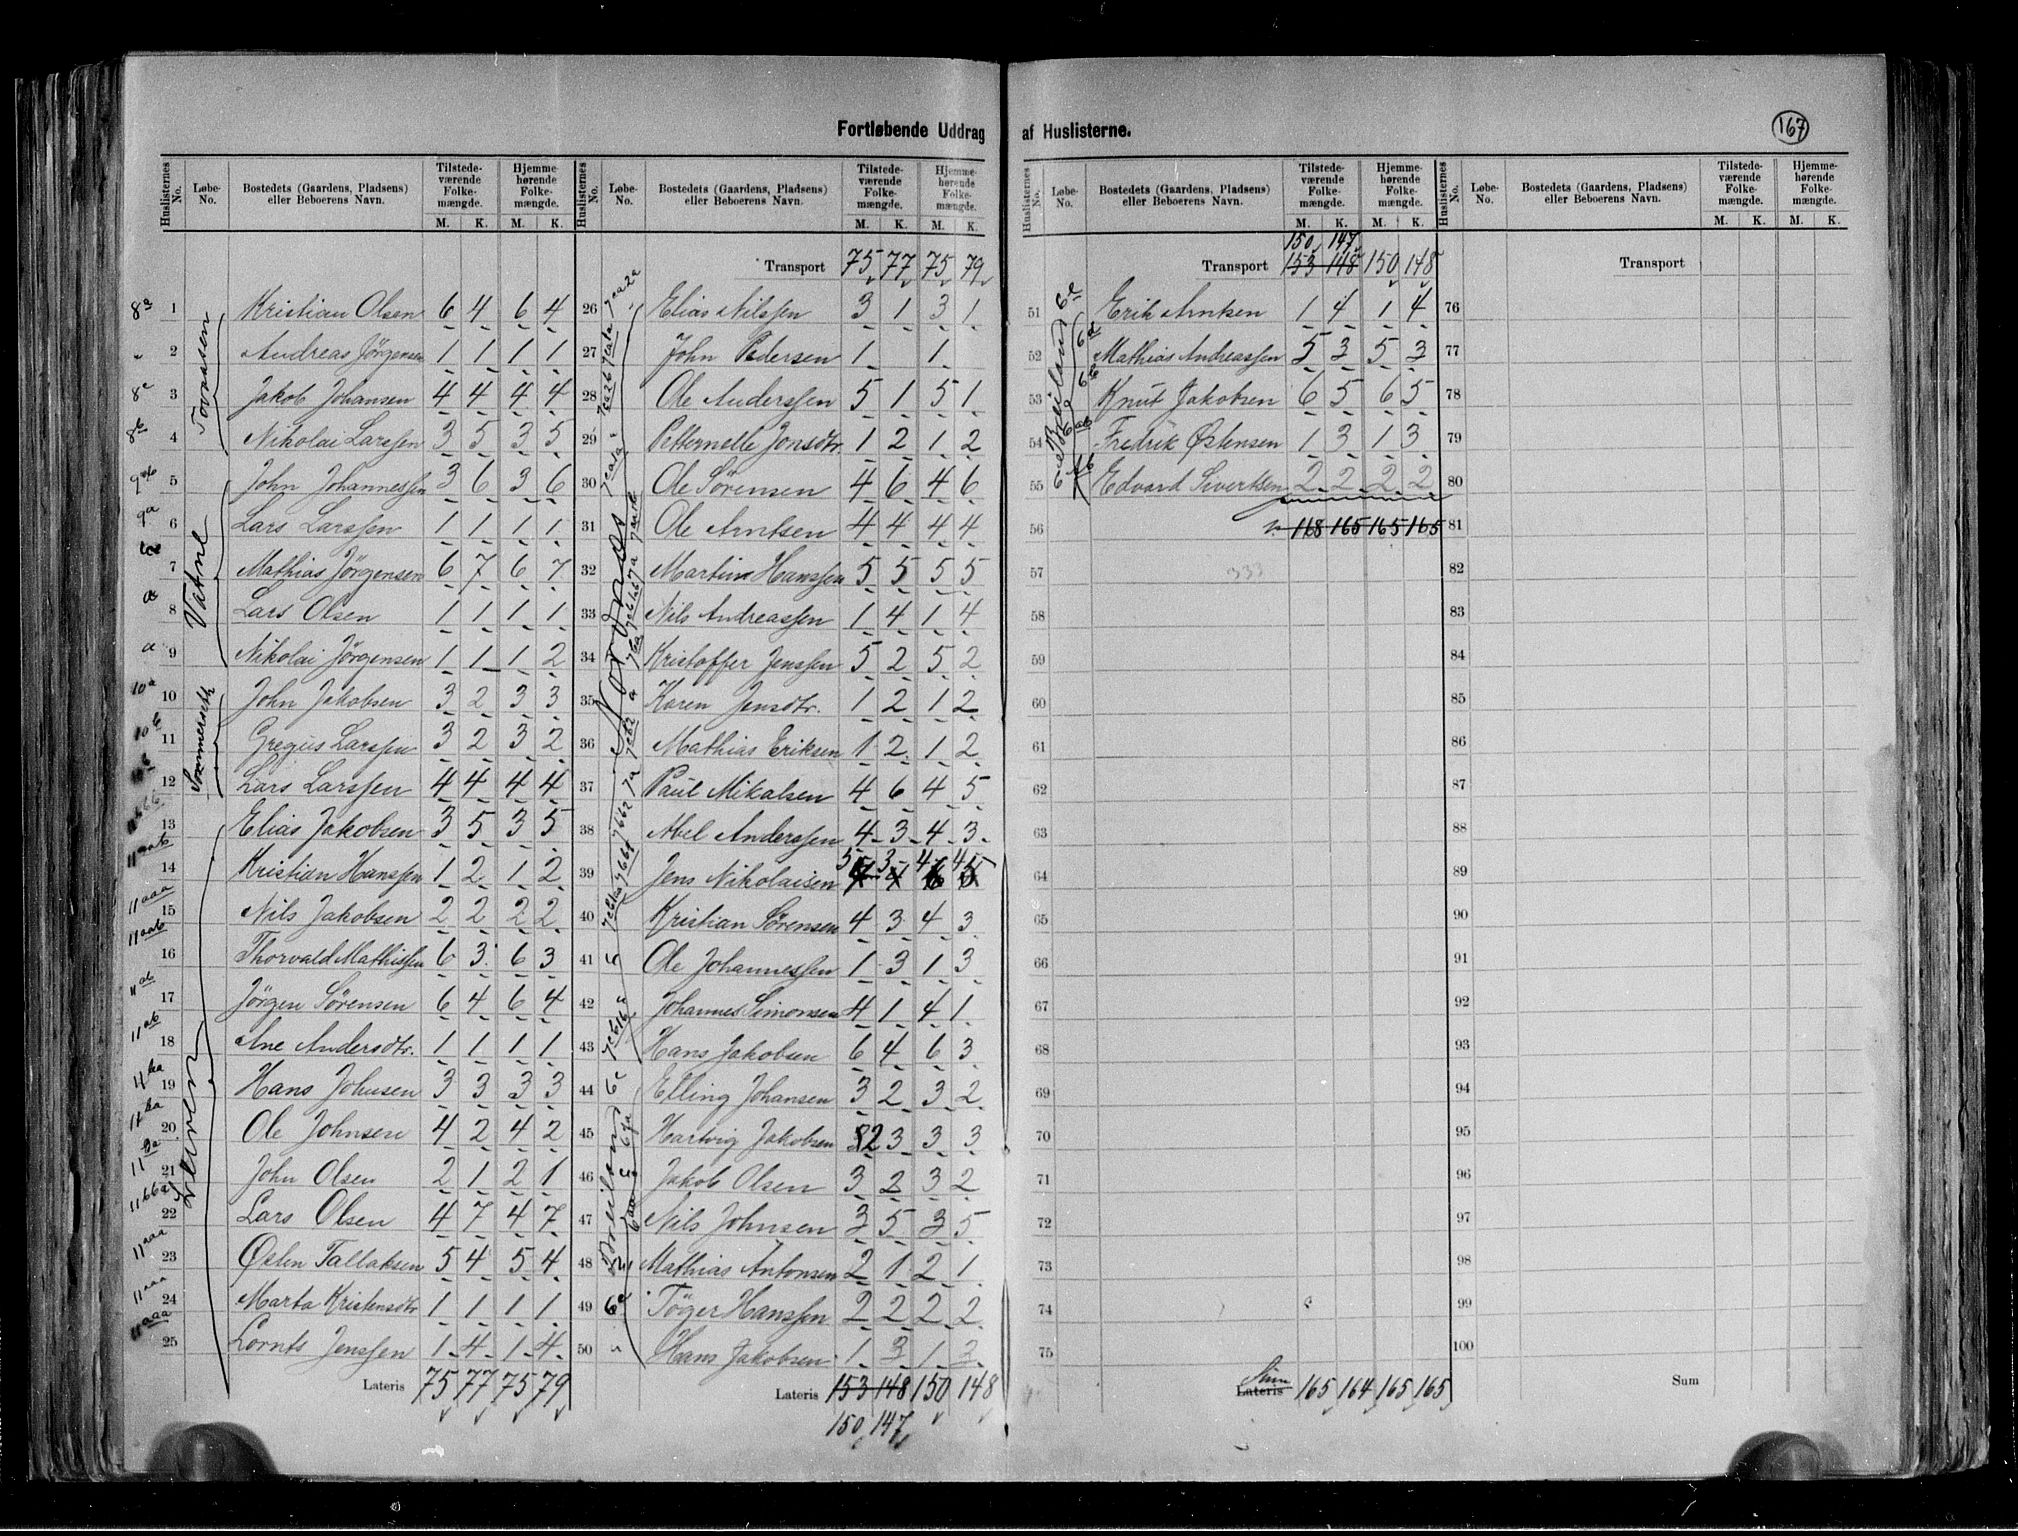 Fortløbende Uddrag af Huslisterne.
167
Huslisternes No. Løbe-No. Bostedets (Gaardens, Pladsens) eller Beboerens Navn. Tilstedeværende Folkemængde. Hjemmehørende Folkemængde.
M. K. M. K.
Tovaasen
8a 1 Kristian Olsen 6 4 6 4
" 2 Andreas Jörgensen 1 1 1 1
8c 3 Jakob Johansen 4 4 4 4
8b 4 Nikolai Larssen 3 5 3 5
Vatne
9ab 5 John Johannessen 3 6 3 6
9a 6 Lars Larssen 1 1 1 1
7 Mathias Jörgensen 6 7 6 7
a 8 Lars Olsen 1 1 1 1
a 9 Nikolai Jörgensen 1 1 1 2
Sommerseth
10a 10 John Jakobsen 3 2 3 3
10b 11 Gregus Larssen 3 2 3 2
12 Lars Larssen 4 4 4 4
13 Elias Jakobsen 3 5 3 5
11aab 14 Kristian Hanssen 1 2 1 2
11aaa 15 Nils Jakobsen 2 2 2 2
11aab 16 Thorvald Mathissen 6 3 6 3
11ab 17 Jörgen Sörensen 6 4 6 4
11ab 18 Ane Andersdtr. 1 1 1 1
11ba 19 Hans Johnsen 3 3 3 3
11ba 20 Ole Johnsen 4 2 4 2
11ba 21 John Olsen 2 1 2 1
11bba 22 Lars Olsen 4 7 4 7
11aaa 23 Östen Tallaksen 5 4 5 4
11aaa 24 Marta Kristensdtr 1 1 1 1
11aaa 25 Lornts Jenssen 1 4 1 4
Lateris 75 77 75 79
Huslisternes No. Løbe-No. Bostedets (Gaardens, Pladsens) eller Beboerens Navn. Tilstedeværende Folkemængde. Hjemmehørende Folkemængde.
M. K. M. K.
Transport 75 77 75 79
26 Elias Nilssen 3 1 3 1
27 John Pedersen 1 1
28 Ole Anderssen 5 1 5 1
29 Petternelle Jonsdtr. 1 2 1 2
30 Ole Sörensen 4 6 4 6
31 Ole Arntsen 4 4 4 4
32 Martin Hanssen 5 5 5 5
33 Nils Andreassen 1 4 1 4
34 Kristoffer Jenssen 5 2 5 2
35 Karen Jensdtr. 1 2 1 2
36 Mathias Eriksen 1 2 1 2
37 Paul Mikalsen 4 6 4 5
38 Abel Anderssen 4 3 4 3
5 3 4 4
39 Jens Nikolaisen
40 Kristian Sörensen 4 3 4 3
41 Ole Johannessen 1 3 1 3
42 Johannes Simonsen 4 1 4 1
43 Hans Jakobsen 6 4 6 3
44 6c Elling Johansen 3 2 3 2
45 Hartvig Jakobsen 2 3 3 3
46 Jakob Olsen 3 2 3 2
47 Nils Johnsen 3 5 3 5
48 Mathias Antonsen 2 1 2 1
49 Töger Hanssen 2 2 2 2
50 Hans Jakobsen 1 3 1 3
Lateris 153 148 150 148
150 147
Huslisternes No. Løbe-No. Bostedets (Gaardens, Pladsens) eller Beboerens Navn. Tilstedeværende Folkemængde. Hjemmehørende Folkemængde.
M. K. M. K.
150 147
Transport 153 148 150 148
51 Erik Arntsen 1 4 1 4
52 Mathias Andreassen 5 3 5 3
53 Knut Jakobsen 6 5 6 5
54 Fredrik Östensen 1 3 1 3
55 Edvard Sivertsen 2 2 2 2
56 168 165 165 165
57 333
58
59
60
61
62
63
64
65
66
67
68
69
70
71
72
73
74
75
Sum
Lateris 165 164 165 165
Huslisternes No. Løbe-No. Bostedets (Gaardens, Pladsens) eller Beboerens Navn. Tilstedeværende Folkemængde. Hjemmehørende Folkemængde.
M. K. M. K.
Transport
76
77
78
79
80
81
82
83
84
85
86
87
88
89
90
91
92
93
94
95
96
97
98
99
100
Sum